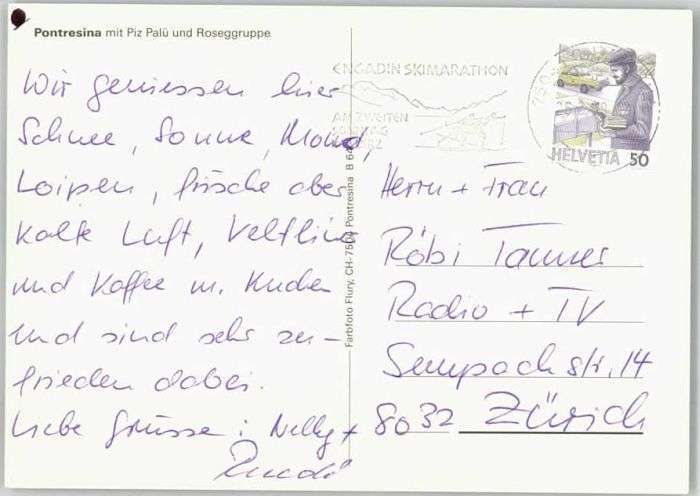 Pontresina mit Piz Palü und Roseggruppe
Wir geniessen hier
Schnee, Sonne, Mond,
Loipen, frische aber
kalte Luft, Veltliner
und Kaffee m. Kuchen
und sind sehr zu-
frieden dabei.
Liebe Grüsse: Nelly +
Ruedi
Farbfoto Flury, CH-7504 Pontresina B
ENGADIN SKIMARATHON
AM ZWEITEN
HELVETIA 50
Herrn + Frau
Röbi Tanner
Radio + TV
Sempachstr. 14
8032 Zürich